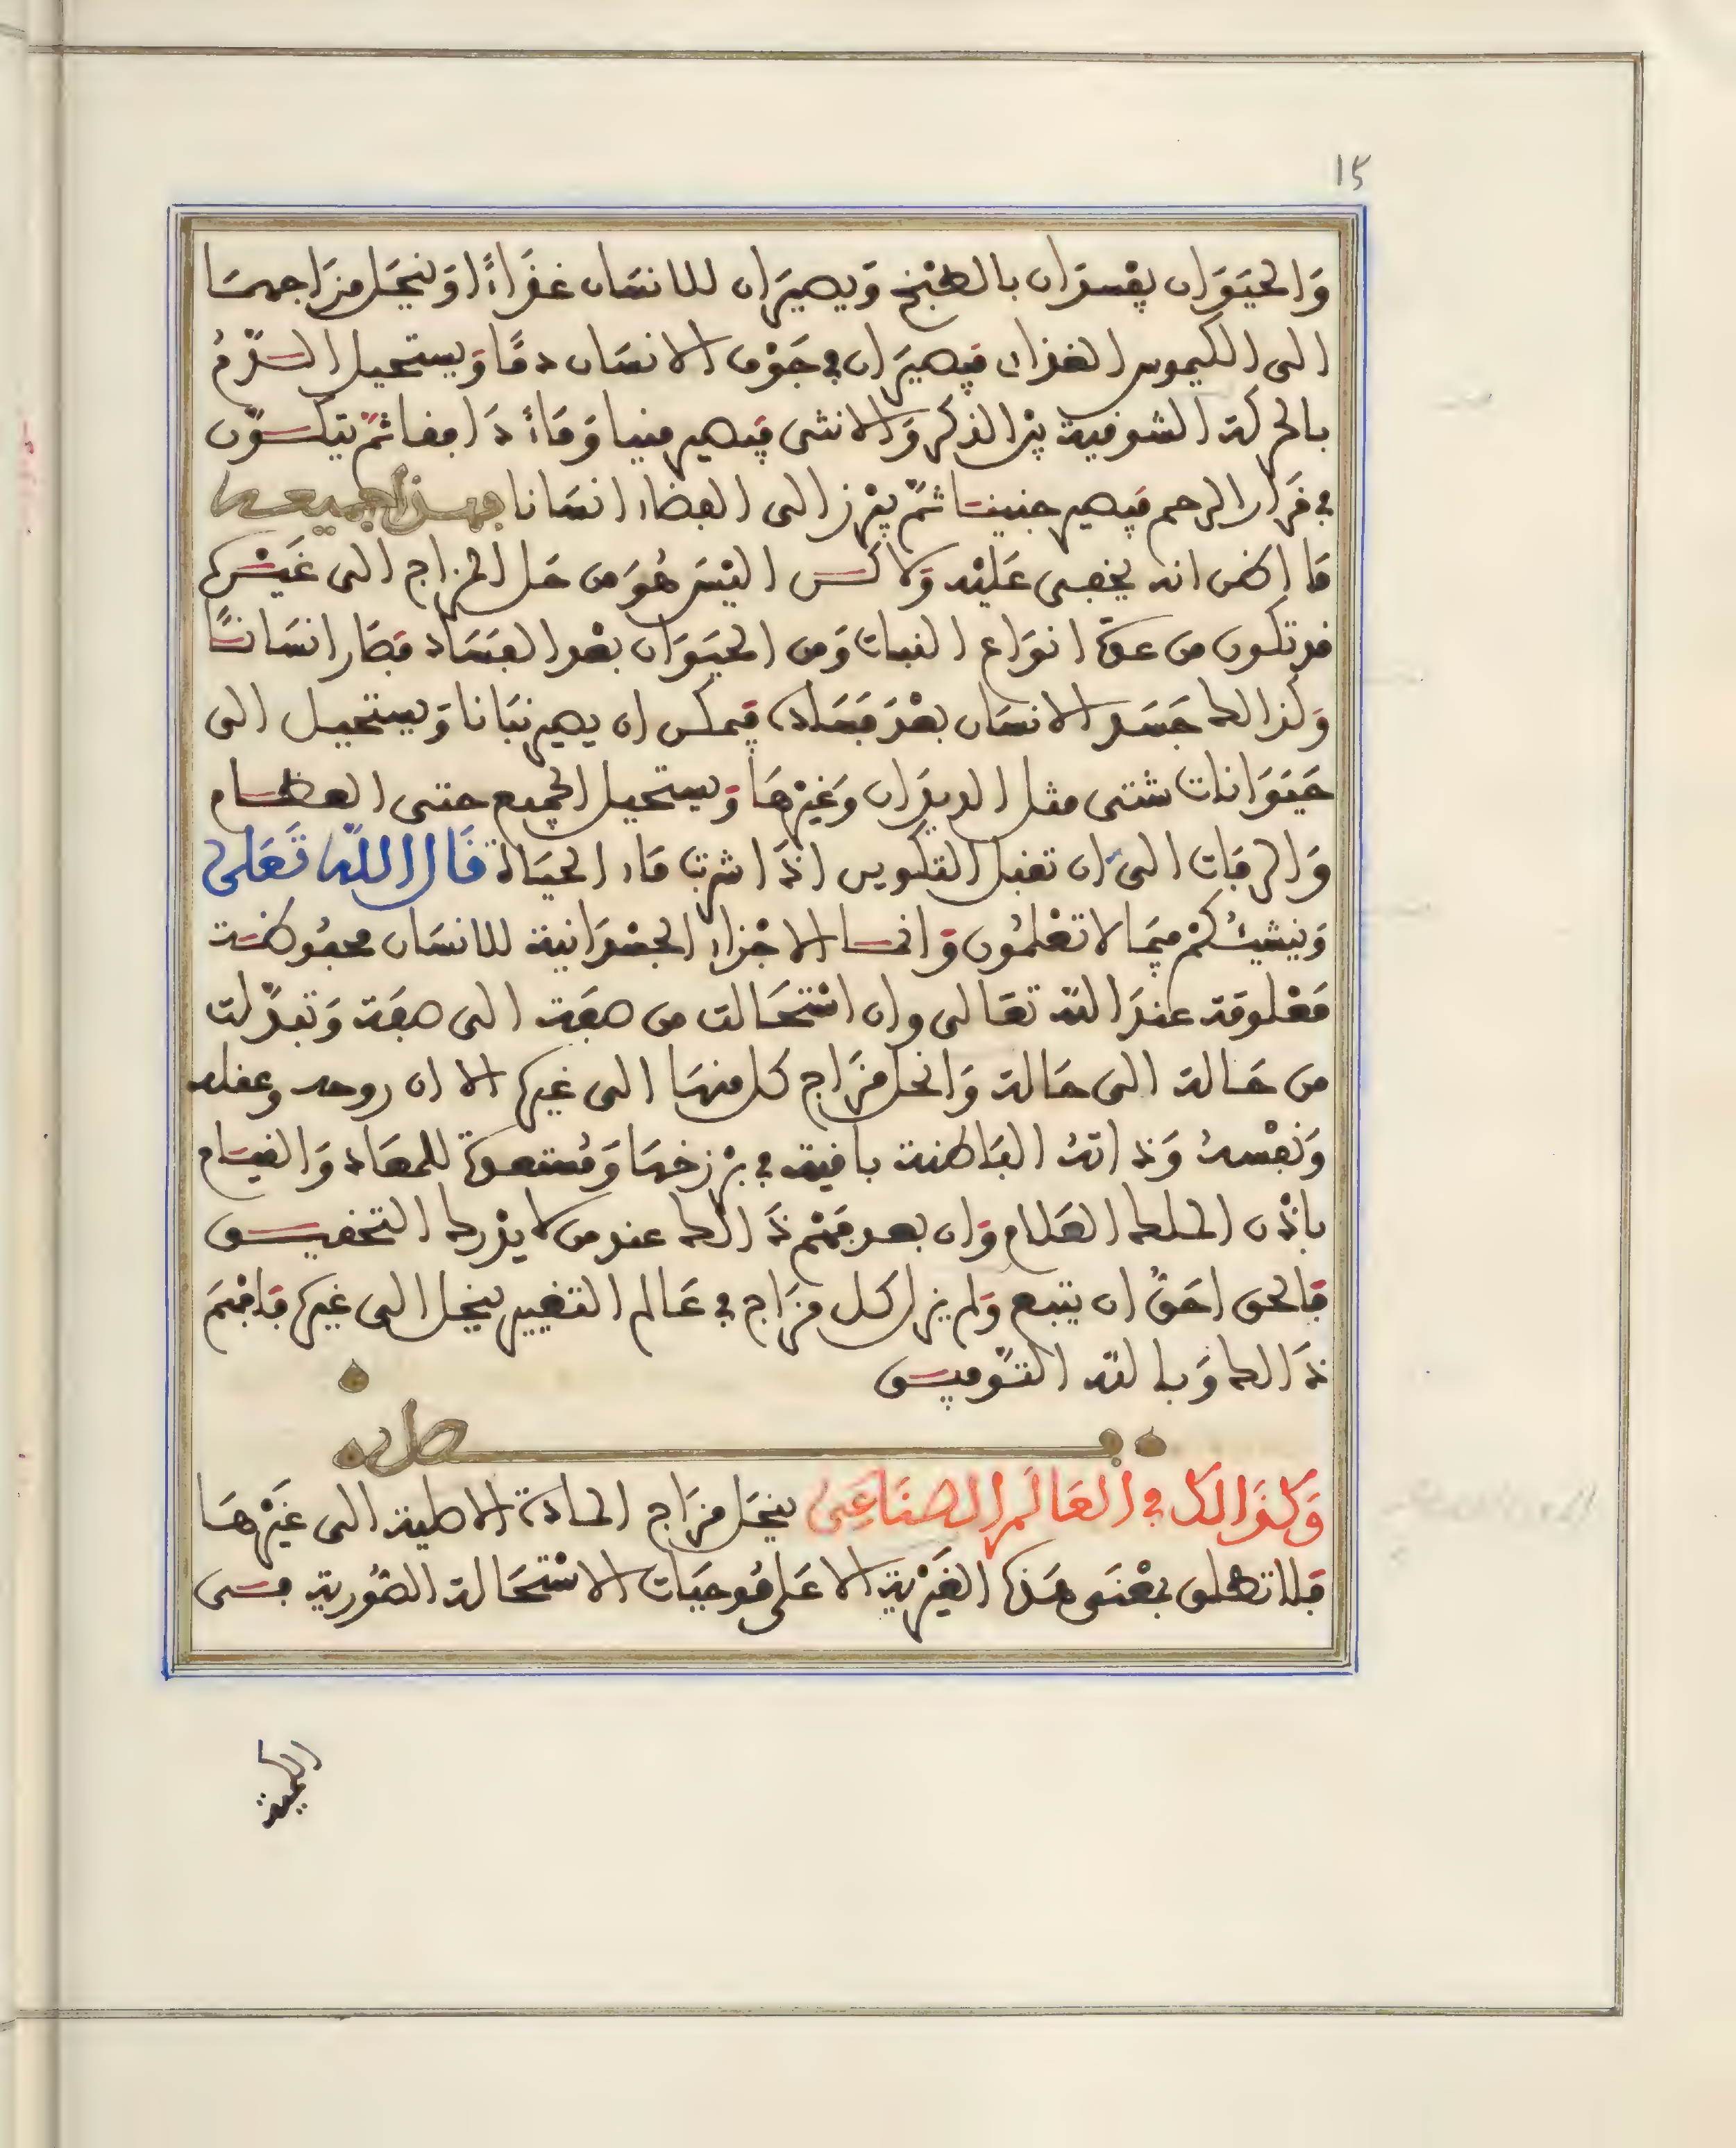 15
وَالحَيَوَان يفْسدَان بالطبْخ وَيصيرَان للانسَان غذَاءً اوَينحَل مزَاجهمَا
الى الكيموس الغذاءى فيصيرَان في جَوْف الانسَان دمًا وَيستحيل الدّمُ
بالحركة الشوقية بيْن الذكر وَالانثى فيصير منيا وَمَاءً دَافقا ثمّ يتكوّن
في قرَار الرحم فيصير جنينا ثمّ يبْرز الى الفضاء انسَانا فهذا جميعه
مَا اظن انه يخفى عَليْه وَلاكن اليْسَ هُوَ من حَل المزاج الى غَيْره
فدتكون من عدة انوَاع النبات وَمن الحيَوَان بعْد الفسَاد فصَار انسَانًا
وَكذالك جَسَد الانسَان بعْدَ فسَاده فيمكن ان يصير نبَاتا وَيستحيل الى
حَيَوَانات شتى مثل الديدَان وَغيْرهَا وَيستحيل الجميع حتى العظام
وَالرفَات الى ان تقبل التكوين اذَا شربَت مَاء الحيَاة قَال اللّه تَعَلى
وَننشئكُمْ فيمَا لا تعْلمُون وَانما الاجْزاء الجسْدَانية للانسَان محفُوظة
مَعْلومَة عندَ اللّه تعَالى وان اسْتحَالت من صفَة الى صفَة وَتبدّلت
من حَالة الى حَالة وَانحل مزَاج كل منهَا الى غيره الا ان روحه وعقله
وَنفْسهُ وَذاتهُ البَاطنة باقية في برْزخهَا وَمُستعدة للمعَاد وَالقيَام
باذْن الملك العَلام وَان بعد فهْم ذَالك عند من لا يدْرك التحقيق
فالحق احَقُّ ان يتبع وَلم يزل كل مزَاج في عَالم التغيير ينحل الى غيره فافْهَمْ
ذَالك وَبالله التوْفيق
فصل
وَكذَالك في العَالَم الصنَاعَى ينحَل مزَاج المادة الاصلية الى غَيْرهَا
فلا تطلق بمعْنَى هَذه الغَيْرية الا عَلى مُوجبَات الاسْتحَالة الصُّورية فمن